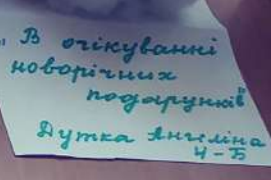 "В очікуванні
новорічних
подарунків"
Дутка Ангеліна
4-Б